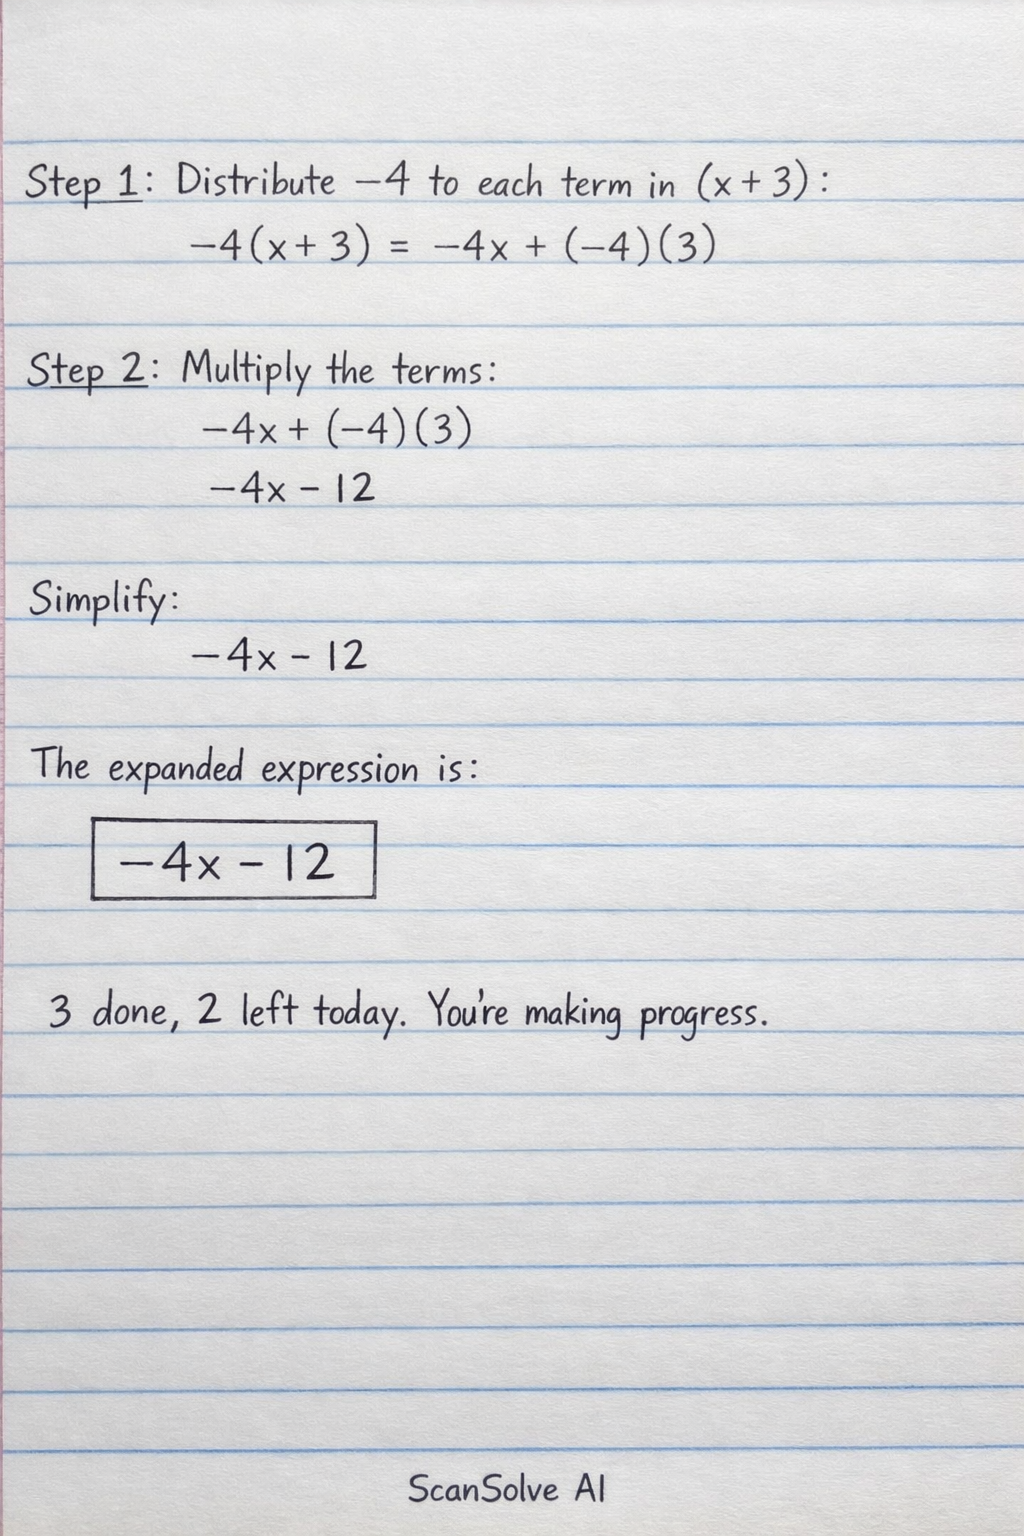 Step 1: Distribute −4 to each term in (x + 3):
−4(x + 3) = −4x + (−4)(3)
Step 2: Multiply the terms:
−4x + (−4)(3)
−4x − 12
Simplify:
−4x − 12
The expanded expression is:
−4x − 12
3 done, 2 left today. You're making progress.
ScanSolve AI